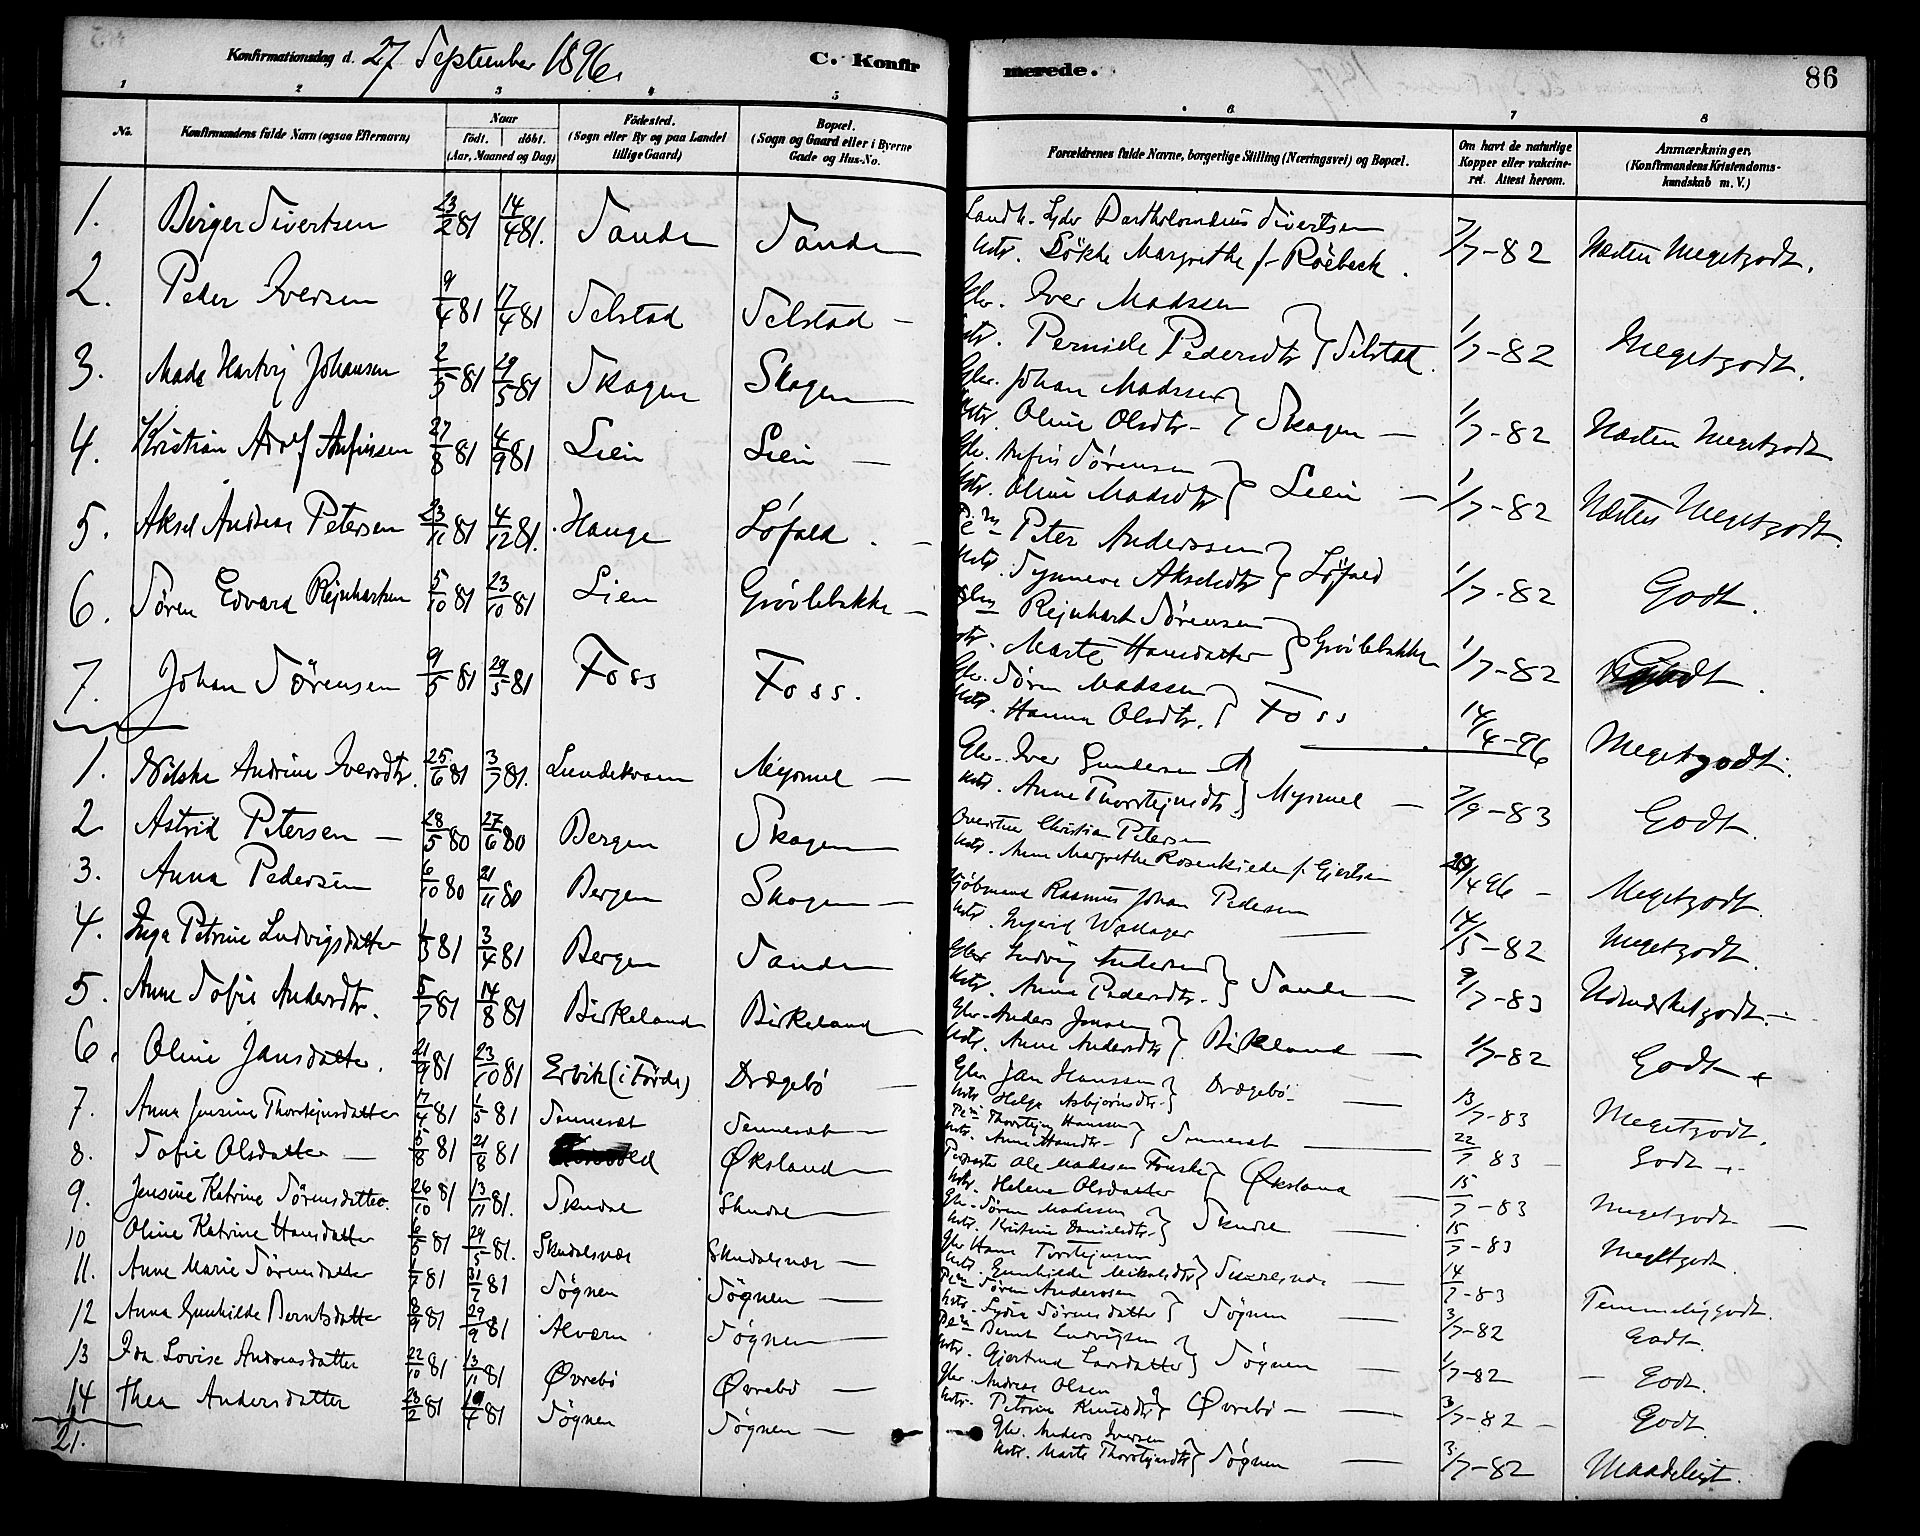 Konfirmationsdag d. 27 September 1896.
C. Konfirmerede.
86
1 2 3 4 5 6 7 8
No.
Konfirmandens fulde Navn (ogsaa Efternavn)
Naar
født. døbt.
(Aar, Maaned og Dag)
Fødested.
(Sogn eller By og paa Landet
tillige Gaard)
Bopæl.
(Sogn og Gaard eller i Byerne
Gade og Hus-No.
Forældrenes fulde Navne, borgerlige Stilling (Næringsvei) og Bopæl.
Om havt de naturlige
Kopper eller vakcine-
ret. Attest herom.
Anmærkninger,
(Konfirmandens Kristendoms-
kundskab m. V.)
1. Birger Sivertsen 23/2 81 14/4 81. Sande Sande
Bartholomæus Sivertsen
Margrethe f. Röebeck. 7/7-82 Næsten Megetgodt.
2. Peder Iversen 9/4 81 17/4 81 Selstad Selstad -
Gbr. Iver Madssen
Pernille Pedersdtr } Selstad. 1/7-82 Megetgodt.
3. Mads Hartvig Johansen 2/5 81 29/5 81 Skagen Skagen
Gbr. Johan Madssen
Oline Olsdtr. } Skagen - 1/7-82 Næsten Megetgodt
4. Kristian Adolf Anfinsen 27/8 81 4/9 81 Lien Lien -
Gbr. Anfin Sørensen
Oline Madsdtr } Lien - 1/7-82 Næsten Megetgodt.
5. Aksel Andreas Petersen 23/11 81 4/12 81. Hauge Løfald. -
Peter Anderssen
Synneve Akselsdtr } Løfald 1/7-82 Godt.
6. Søren Edvard Rejnhartsen 5/10 81 23/10 81 Lien Grøolebakke -
Rejnhart Sørensen
Marte Hansdatter } Grøolebakke 1/7-82 Godt.
7. Johan Sörensen 9/5 81 29/5 81 Foss Foss.
Gbr. Søren Madssen
Hanna Olsdtr. } Foss 14/4-96 Megetgodt.
1. Nilske Andrine Iversdtr. 25/6 81 3/7 81. Lundekvam Myrmel -
Gbr. Iver Gundersen
Anne Thorstejnsdtr } Myrmel - 7/9-83 Godt.
2 Astrid Petersen - 28/5 80 27/6 80 Bergen Skagen
Christian Petersen
Anne Margrethe Rosenkilde f. Gjertsen 4 96 - Megetgodt.
3. Anna Pedersen 6/10 80 21/11 80 Bergen Skagen -
Kjøbmand Rasmus Johan Pedersen
Ingerid 14/5-82 Megetgodt.
4. Inga Petrine Ludvigsdatter 1/3 81 3/4 81 Bergen Sande
Gbr Ludvig Andersen
Anna Pedersdtr. } Sande - 9/7-83 Udmærketgodt.
5. Anne Sofie Andersdtr. 5/7 81 14/8 81 Birkeland Birkeland
Gbr. Anders Jonsen
Anne Andersdtr } Birkeland - 1/7-82 Godt
6. Oline Jansdatter. 21/9 81 23/10 81 Ervik (i Førde) Drægebø -
Gbr Jan Hanssen
Helga Asbjørnsdtr. } Drægebø - 13/7-83 Megetgodt.
7. Anna Jensine Thorstejnsdatter 17/4 81 1/5 81 Sennesæt Sennesæt -
Thorstejn Hanssen
Anne Hansdtr - } Sennesæt - 22/7 83 - Godt
8. Sofie Olsdatter - 5/8 81 21/8 81 Øksland
Ole Madssen
Helene Olsdatter } Øksland - 15/7-83 Megetgodt -
9. Jensine Katrine Sörensdatter. 26/10 81 13/11 81. Skudal Skudal -
Gbr. Søren Madssen
Kristine Danielsdtr. } Skudal - 15/7-83 Megetgodt.
10 Oline Katrine Hansdatter 81 29/5 81. Skudalsnæs Skudalsnæs -
Gbr Hans Torstejnsen
Gunhilde Mikalsdtr } - 14/7-83 Temmeliggodt.
11. Anne Marie Sörensdatter 81 31/7 81 Søgnen Søgnen -
Søren Anderssen
Sørensdatter } Søgnen - 3/7-82 Godt.
12 Anna Gunhilde Berntsdatter 81 29/9 81 Alværn Søgnen -
Bernt Ludvigsen
Gjertrud Larsdatter } Søgnen - 1/7-82 - Godt.
13 Ida Lovise Andreasdatter 22/10 81 13/11 81 Øvrebø Øvrebø -
Gbr Andreas Olsen
Petrine Knudsdtr } Øvrebø - - 3/7-82 - Godt
14 Thea Andersdatter 23/2 81 10/4 81 Søgnen Søgnen -
Gbr. Anders Iversen
Marte Thorstejnsdtr } Søgnen - 3/7-82 Maadeligt.
21.